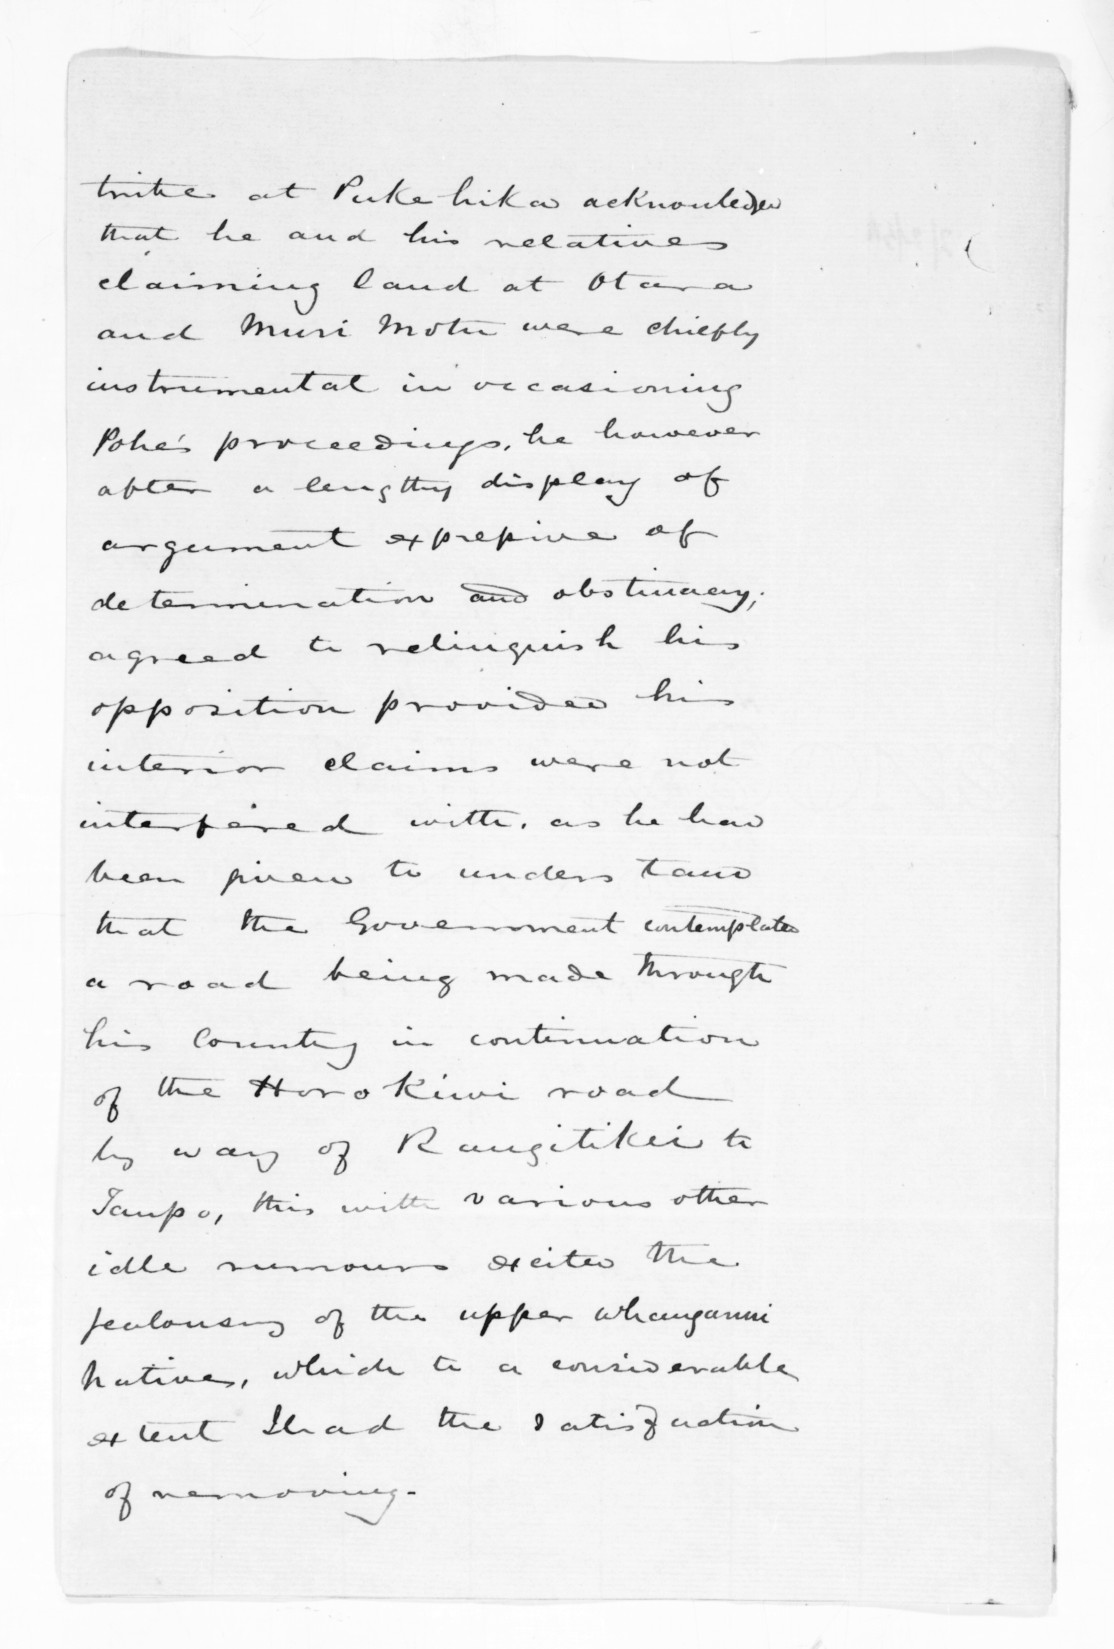 tribe at Pukehika acknowledged
that he and his relatives
claiming land at Otara
and Muri Motu were chiefly
instrumental in occasioning
Pohe's proceedings, he however
after a lengthy display of
argument expressive of
determination and obstinacy;
agreed to relinquish his
opposition provided his
interior claims were not
interfered with. as he had
been given to understand
that the Government contemplated
a road being made through
his Country in continuation
of the Horokiwi road
by way of Rangitikei to
Taupo, this with various other
idle rumours excited the
jealousy of the upper Whanganui
natives, which to a considerable
extent I had the satisfaction
of removing.